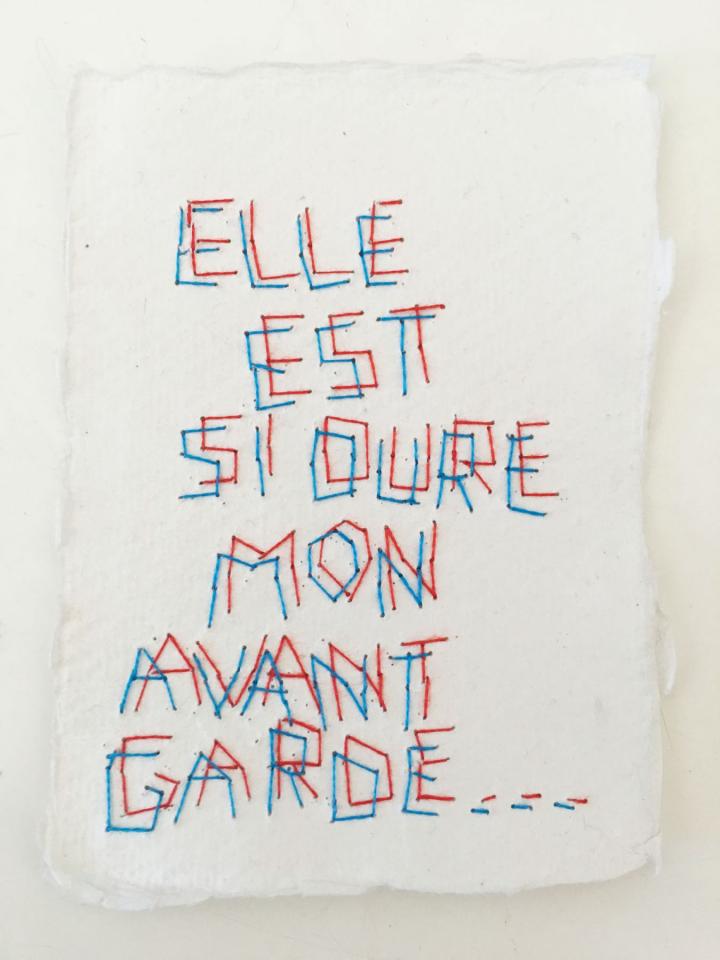 ELLE
EST
SI DURE
MON
AVANT
GARDE...